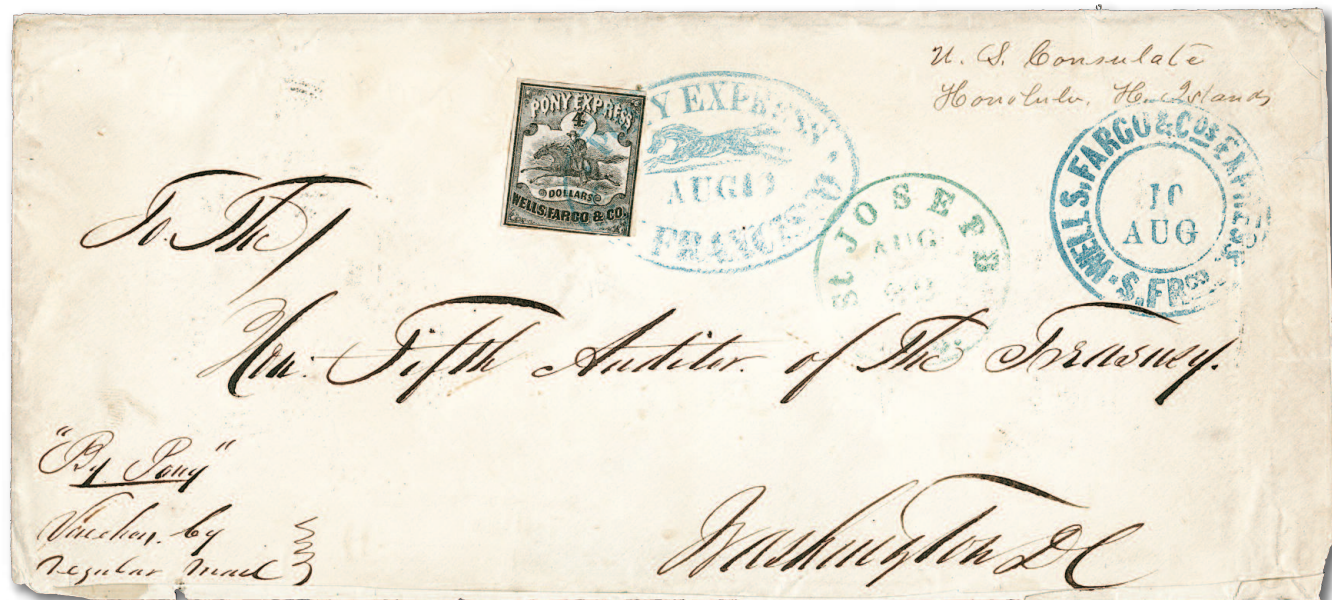 U. S. Consulate
Honolulu, H. Islands
PONY EXPRESS
4
DOLLARS
WELLS, FARGO & CO.
Y EXPRESS
AUG 13
FRANCISCO
St JOSEPH
AUG
WELLS, FARGO & Cos EXPRESS
10
AUG
S. FRco
To The
Hon: Fifth Auditor of The Treasury.
"By Pony"
by
regular mail
Washington DC